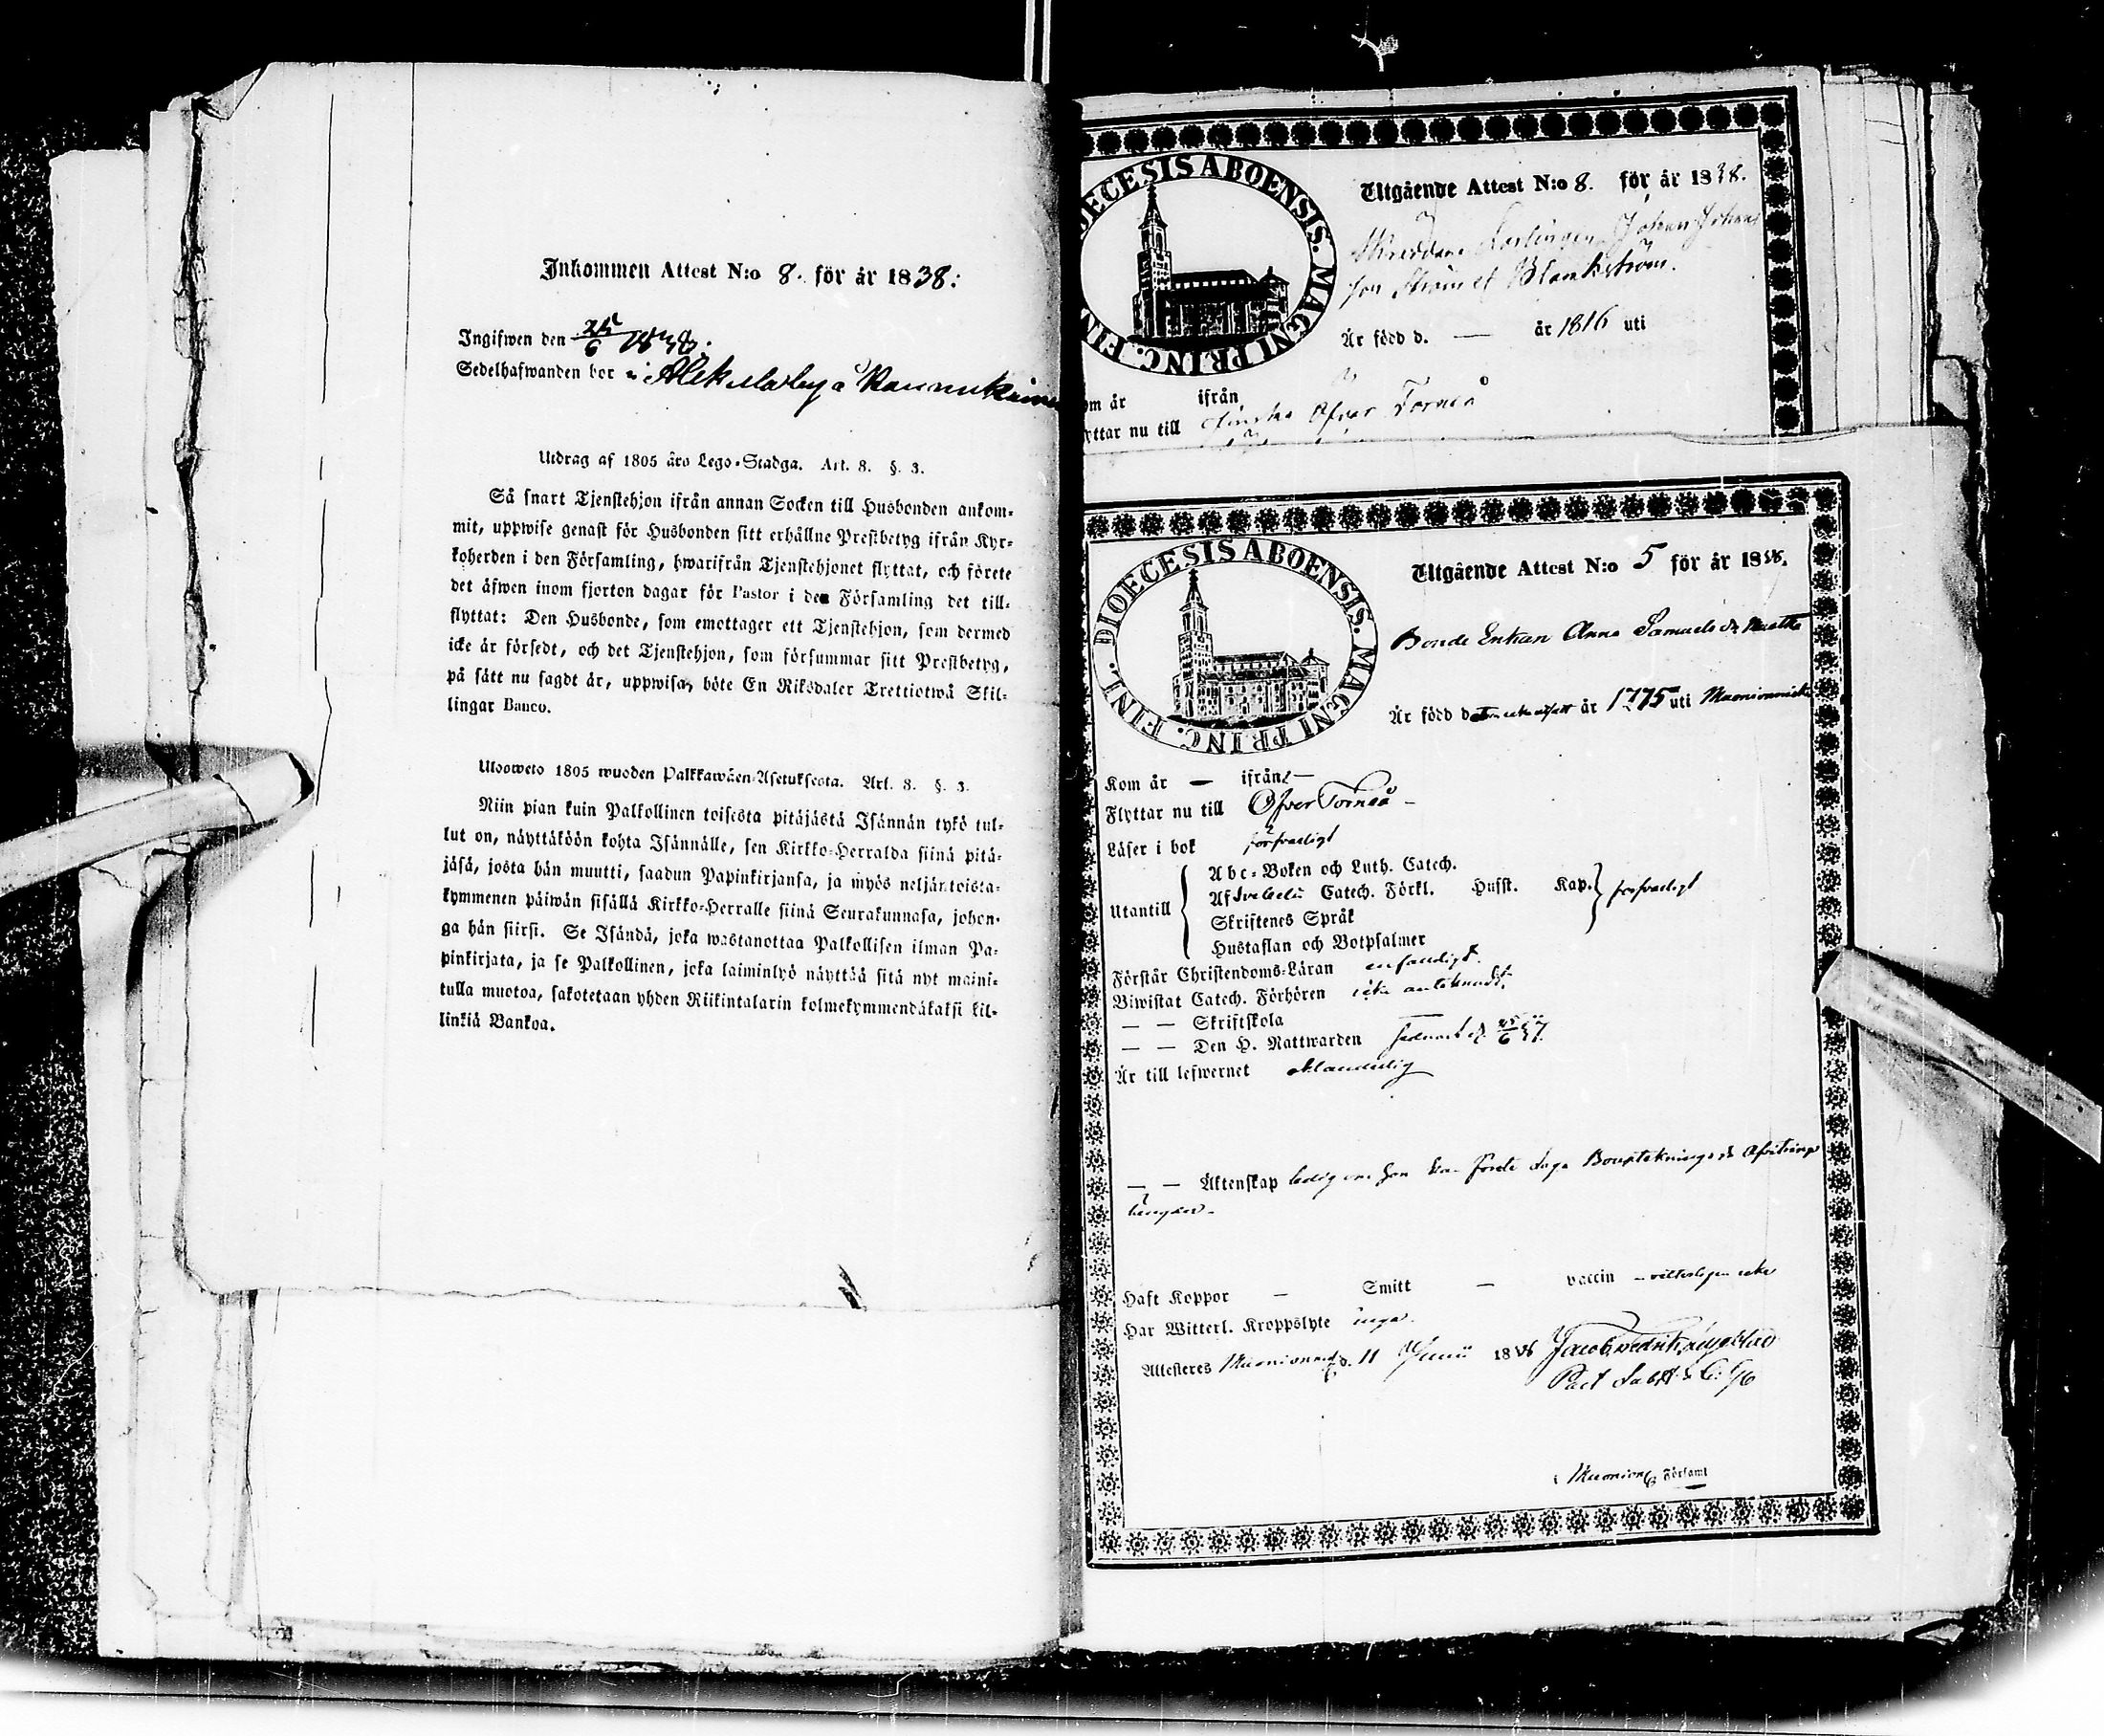 Inkommen Attest N:o 8. för år 1838.
Ingifwen den 25/6 1838.
Sedelhafwanden bor i Alckulaby å
Utdrag af 1805 års Lego-Stadga. Art. 8. §. 3.
Så snart Tjenstehjon ifrån annan Socken till Husbonden ankom-
mit, uppwise genast för Husbonden sitt erhållne Prestbetyg ifrån Kyr-
koherden i den Församling, hwarifrån Tjenstehjonet flyttat, och förete
det äfwen inom fjorton dagar för Pastor i den Församling det till-
flyttat: Den Husbonde, som emottager ett Tjenstehjon, som dermed
icke är försedt, och det Tjenstehjon, som försummar sitt Prestbetyg,
på sätt nu sagdt är, uppwisa, böte En Riksdaler Trettiotwå Skil-
lingar Banco.
Ulosweto 1805 wuoden Palkkawäen-Asetuksesta. Art. 8. §. 3.
Niin pian kuin Palkollinen toisesta pitäjästä Isännän tykö tul-
lut on, näyttäköön kohta Isännälle, sen Kirkko-Herralda siinä pitä-
jäsä, josta hän muutti, saadun Papinkirjansa, ja myös neljäntoista-
kymmenen päiwän sisällä Kirkko-Herralle siinä Seurakunnasa, johon-
ga hän siirsi. Se Isändä, joka wastanottaa Palkollisen ilman Pa-
pinkirjata, ja se Palkollinen, joka laiminlyö näyttää sitä nyt maini-
tulla muotoa, sakotetaan yhden Riikintalarin kolmekymmendäkaksi kil-
linkiä Bankoa.
DIOECESIS ABOENSIS. MAGNI PRINC. FIN
Utgående Attest N:o 8. för år 1838.
Johan Johans
son Blankström.
Är född d. — år 1816 uti
om år ifrån
yttar nu till Öfver Torneå
DIOECESIS ABOENSIS. MAGNI PRINC. FINL.
Utgående Attest N:o 5 för år 18
Bonde Enkan Anna Samuels dr
Är född d år 1775 uti Muonioniska
Kom år — ifrån —
Flyttar nu till Öfver Torneå –
Läser i bok försvarligt
Utantill
Abc-Boken och Luth. Catech.
Af Svebelii Catech. Förkl. Husst. Kap. försvarligt
Skriftenes Språk
Hustaflan och Botpsalmer
Förstår Christendoms-Läran enfaldigt
Biwistat Catech. Förhören icke antecknadt.
— — Skriftskola —
— — Den H. Nattwarden sednast d. 25/6 37.
Är till lefwernet oklanderlig
— — Äktenskap ledig om hon kan förete laga Bouptecknings & Afvittrings
Haft Koppor — Smitt — vaccin – veterligen icke
Har Witterl. Kroppslyte inga.
Attesteres Muonionis d. 11 Junii 18
i Muonion Församl